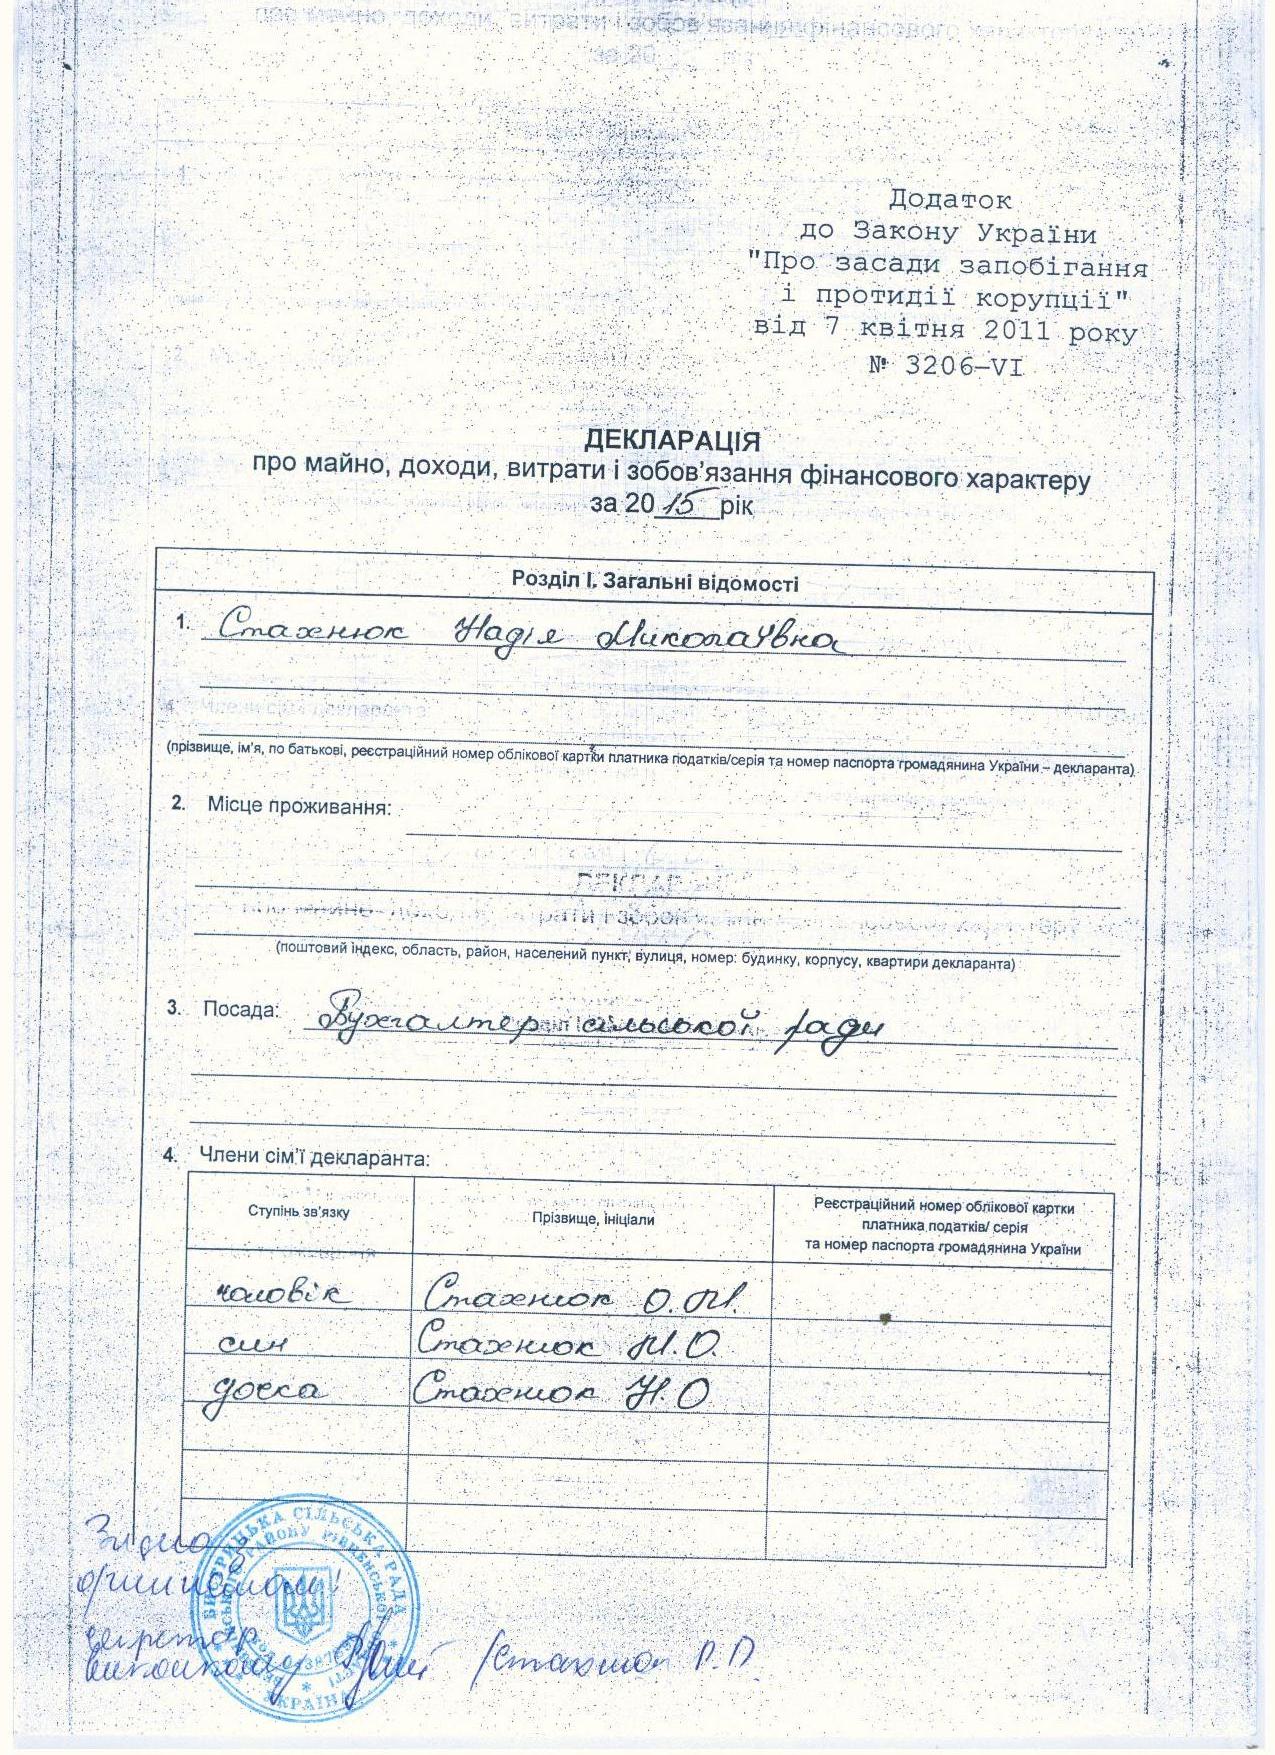 Додаток
до Закону України
"Про засади запобігання
і протидії корупції"
від 7 квітня 2011 року
№ 3206–VI
ДЕКЛАРАЦІЯ
про майно, доходи, витрати і зобов'язання фінансового характеру
за 2015 рік
Розділ І. Загальні відомості
1. Стахнюк Надія Миколаївна
(прізвище, ім'я, по батькові, реєстраційний номер облікової картки платника податків/серія та номер паспорта громадянина України – декларанта)
2. Місце проживання:
(поштовий індекс, область, район, населений пункт, вулиця, номер: будинку, корпусу, квартири декларанта)
3. Посада: Бухгалтер сільської ради
4. Члени сім'ї декларанта:
Ступінь зв'язку Прізвище, ініціали Реєстраційний номер облікової картки
платника податків/ серія
та номер паспорта громадянина України
чоловік Стахнюк О. М.
син Стахнюк М. О.
дочка Стахнюк Н. О
Згідно з
оригіналом!
секретар
виконкому Стахнюк Р. П.
СІЛЬСЬКА РАДА
РАЙОНУ РІВНЕНСЬКОЇ
УКРАЇНА